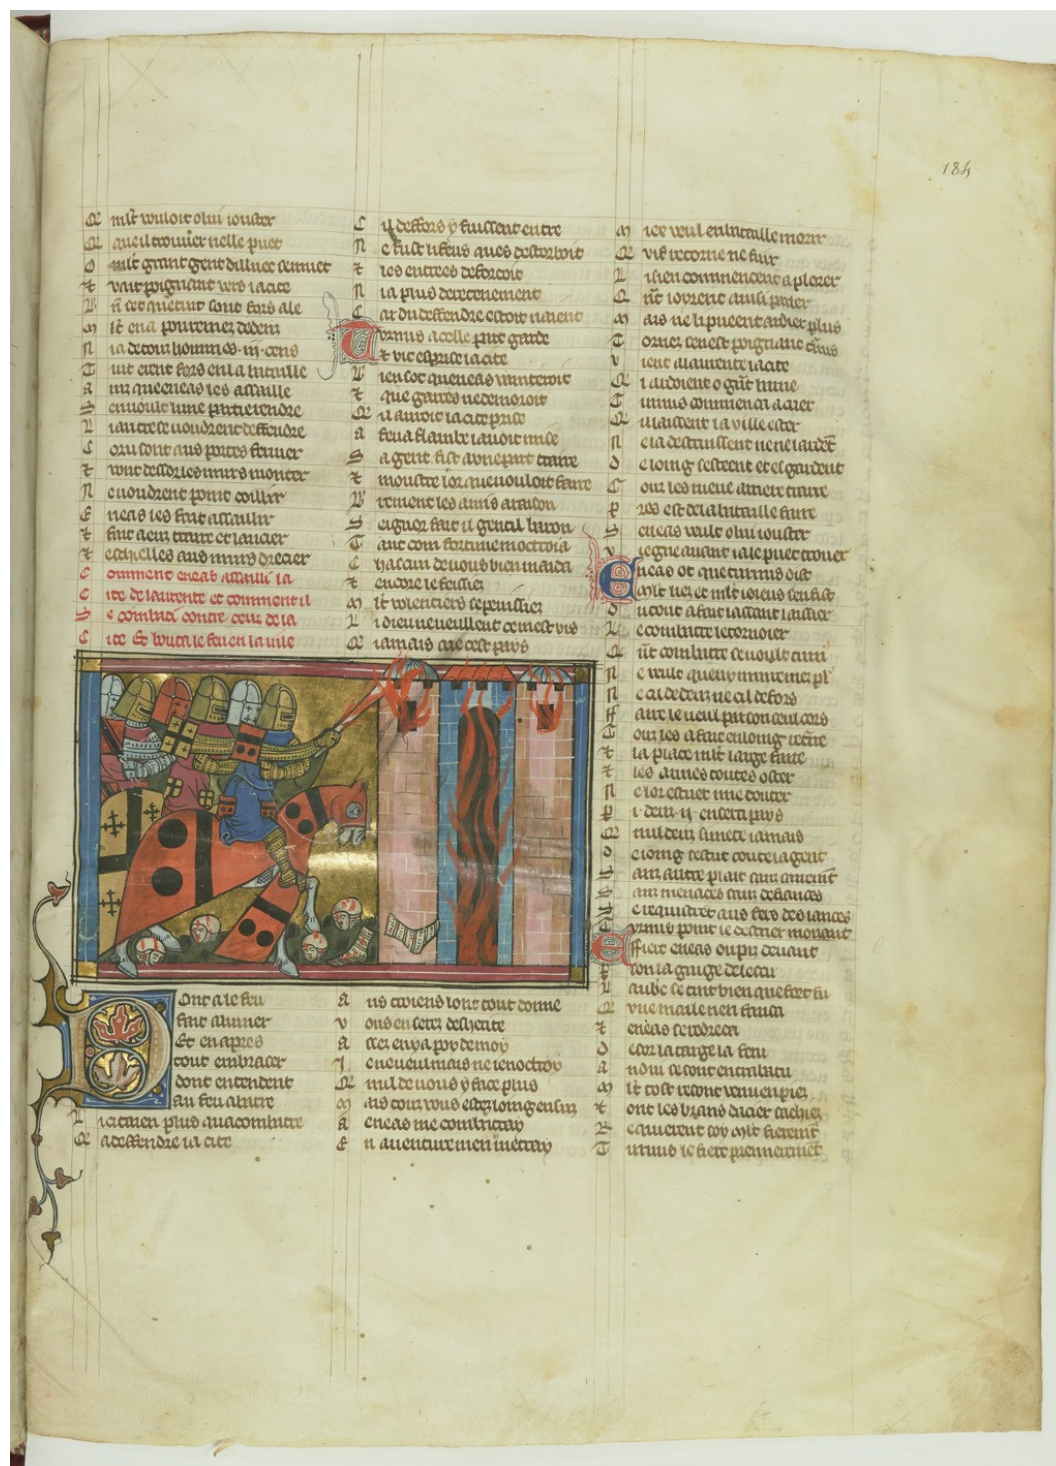 184
Q mlt vouloit o lui iouster
Q que il trouver nelle puet
O mlt grant gent dilluec sesmuet
Et vait poignant vers la cite
ct que tuit sont fors ale
M lt en a pou remez dedenz
N ia de touz hommes .iii. cens
T uit erent fors en la bataille
A inz que eneas les assaille
S en voult lune partie rendre
L autre se voudrent deffendre
C oru sont aus portes fermer
Et vont desor les murs monter
N e voudrent point
E neas les fait assaillir
Et fait a eulz traire et lancier
Et eschielles aus murs drecier
C omment eneas assailli la
C ite de laurente et comment il
S e combati contre ceux de la
C ite Et bouta le feu en la vile
D Ont a le feu
fait alumer
Et en apres
tout embraser
dont entendent
au feu abatre
L i citaien plus qua combatre
Q a deffendre la cite
C il deffors y fussent entre
N e fust li feus ques destorboit
Et les entrees deforcoit
N ia plus deretenement
C ar du deffendre estoit naient
T urnus a celle part garde
Et vit esprise la cite
B ien sot queneas vainteroit
Et que gaires ne demoroit
Q uil auroit la cite prise
A feu a flambe lauoit mise
S a gent fist a une part traire
Et moustre lor que vouloit faire
B irement les a mis a raison
S eignor fait il gentil baron
T ant com fortune moctroia
C hascun de vous bien maida
Et encore le feissiez
M lt volentiers se peussiez
L i dieu ne veullent ce mest vis
Q iamais aie cest pays
A us troiens lont tout donne
V ous en serez desherite
A cez en y a por de moy
J e ne veul mais ne ienoctroy
Q nul de vous y face plus
M ais touz vous estez loing ensuz
A eneas me combatray
E n auenture men metray
M iex veul en bataille morir
Q vis recorne ne fuir
L i sien commencent a plorer
Q nt loyrent ainsi parler
M ais ne li pueent aidier plus
T ornez sen est poignant turnus
V ient a laurente la cite
Q i ardoient o grant
T urnus commenca a crier
Q laissent la ville ester
N e la destruissent ne ne lardent
D e loing sestent et esgardent
T ouz les rueue arriere traire
P res est de la bataille faire
S eneas veult o lui iouster
V iegne auant ia le puet trouer
E neas ot que turnus dist
Mlt liez et mlt ioieus sen fist
D u tout a fait lassaut laissier
L e combatre
Q nt combatre se voult a lui
N e veult quen y muire mez pl
N e cil dedenz ne cil defors
F aire le veul par son seul cors
T ouz les a fait en loing retraire
Et la place mlt large faire
Et les armes toutes oster
N e lor estuet mie douter
P .i. deuz .ii. en sera pays
Q nul deuz a iamais
D e loing restut toute la gent
S anz autre plait sanz
S anz menaces sanz defiances
S e requistrent aus fers des lances
T urnus point le destrier mouuant
E ffiert eneas ou piz deuant
Son la guige de lescu
L aube se tint bien que fort fu
Q vne maile nen faussa
Et eneas
D esor la targe la feru
A ndui se sont entrabatu
M lt tost resont venu en piez
Et ont les brans dacier sachiez
R equierent soy mlt fierement
T urnus le fiert premierement